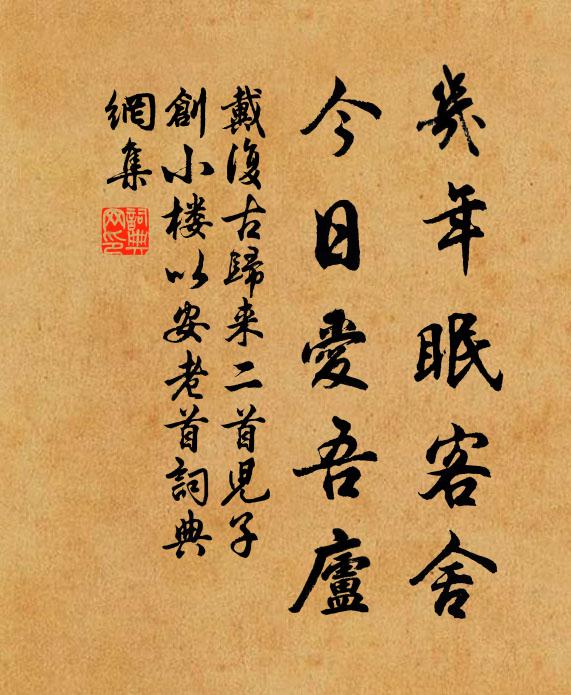 幾年眠客舍
今日愛吾廬
戴復古歸来二首見子
創小楼以安老首詞典
網集
詞典網印